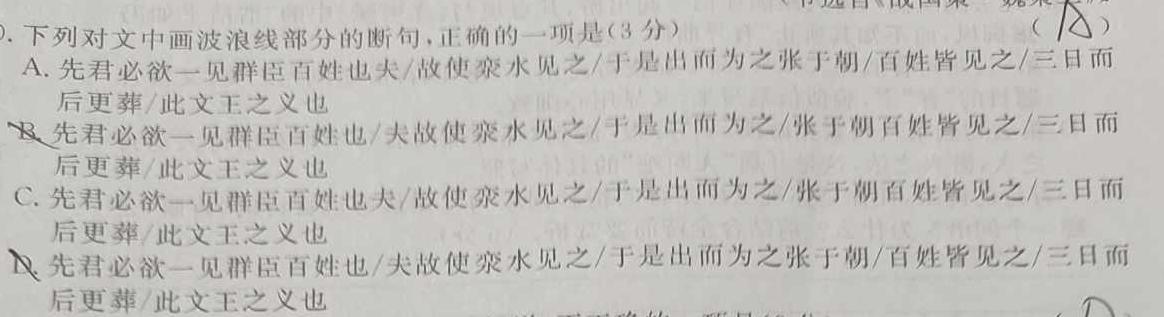 .下列对文中画波浪线部分的断句,正确的一项是(3分) (A)
A. 先君必欲一见群臣百姓也夫/故使栾水见之/于是出而为之张于朝/百姓皆见之/三日而
后更葬/此文王之义也
B. 先君必欲一见群臣百姓也/夫故使栾水见之/于是出而为之/张于朝百姓皆见之/三日而
后更葬/此文王之义也
C. 先君必欲一见群臣百姓也夫/故使栾水见之/于是出而为之/张于朝百姓皆见之/三日而
后更葬/此文王之义也
D. 先君必欲一见群臣百姓也/夫故使栾水见之/于是出而为之张于朝/百姓皆见之/三日而
后更葬/此文王之义也
(D